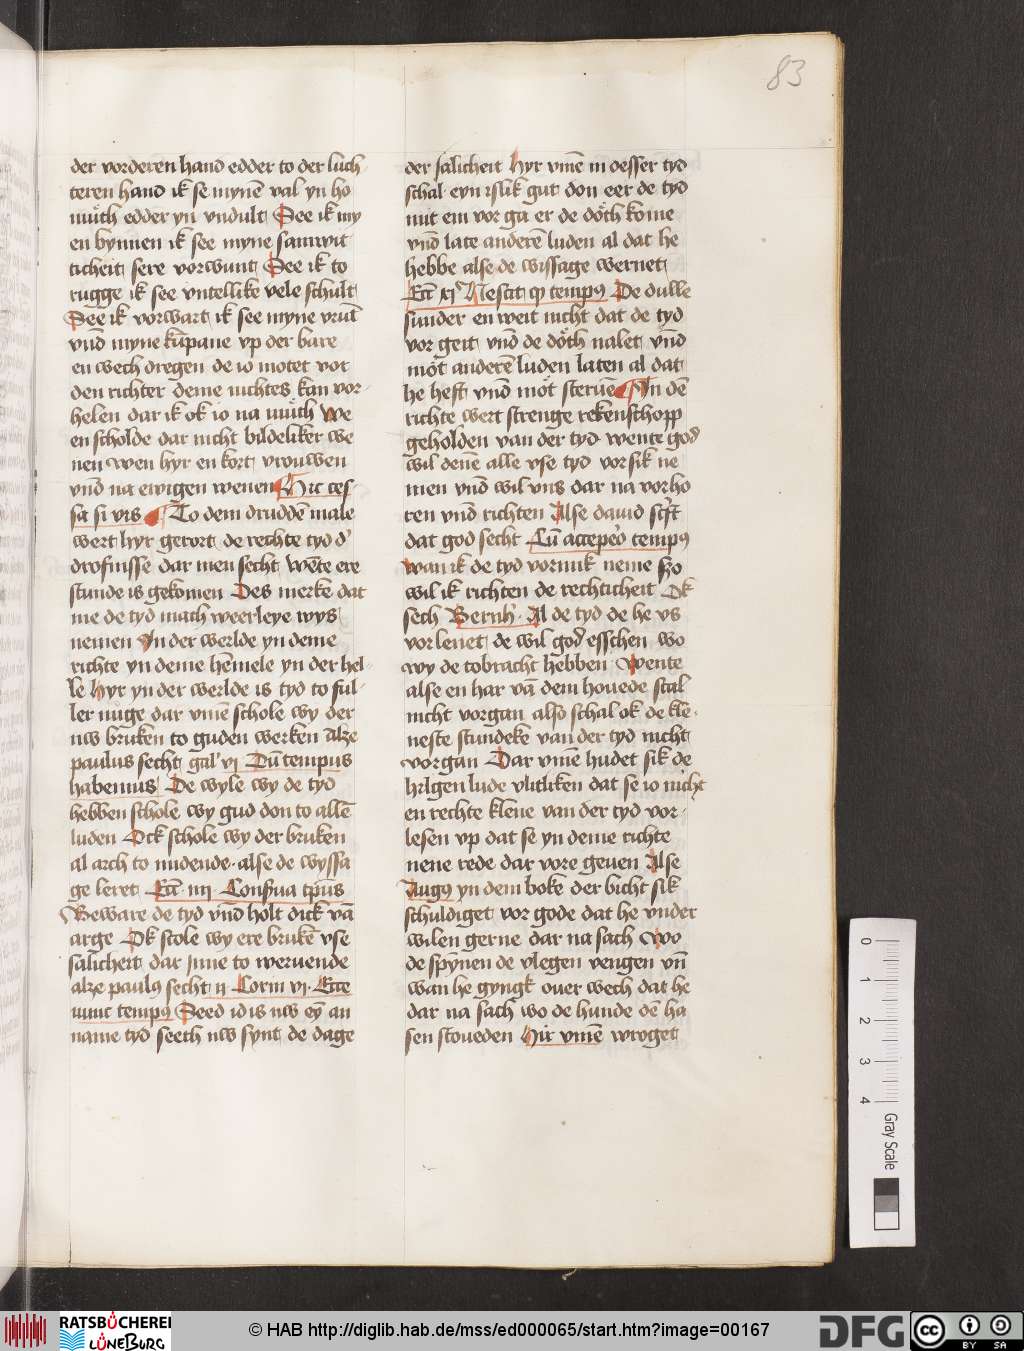 83
der vorderen hand edder to der luch
teren hand ik se mynē val yn ho
muͦth edder yn vndult See ik my
en bynnen ik see myne samwit
ticheit sere vorwunt See ik to
rugge ik see vntellike vele schult
See ik vorwart ik see myne vrūt
vnd myne kūpane vp der bare
en wech dregen de io motet vor
den richter deme nichtes kan vor-
helen dar ik ok io na muͦth We
en scholde dar nicht bildeliker we
nen wen hyr en kort vrouwen
vnd na ewigen wenen Hic ces-
sa si vis To dem drudden male
wert hyr gerort de rechte tyd d'
drofnisse dar men secht Wēte ere
stunde is gekomen Des merke dat
me de tyd mach veerleye wys
nemen In der werlde yn deme
richte yn deme hēmele yn der hel-
le Hyr yn der werlde is tyd to ful-
ler nuͦge dar vmē schole wy der
nw bruken to guden werken Alze
paulus secht gal' vi Dū tempus
habemus De wyle wy de tyd
hebben schole wy gud don to allē
luden Ock schole wy der bruken
al arch to midende alse de wyssa
ge leret Ecc̄ iiii Conserua tp̄us
Beware de tyd vnd holt dick vā
arge Ok scole wy ere brukē vse
salicheit dar ynne to weruende
alze paulꝰ secht ii Corin vi Ecce
nunc tempꝰ Seed id is nw eȳ an
name tyd seech nw synt de dage
der salicheit Hyr vmē in desser tyd
schal eyn islik gut don eer de tyd
mit em vor ga er de doͤth kome
vnd late anderē luden al dat he
hebbe alse de wissage wernet
Ecc̄ xi Nescit qꝫ tempꝰ De dulle
sunder en weit nicht dat de tyd
vor geit vnd de doͤth nalet vnd
moͤt anderē luden laten al dat
he heft vnd moͤt steruē In dē
richte wert strenge rekenschopp
geholden van der tyd wente god
wil denē alle vse tyd vor sik ne
men vnd wil vns dar na vorho
ren vnd richten Alse dauid scͬft
dat god secht Cū accepeo tempꝰ
wan ik de tyd vor mik neme szo
wil ik richten de rechticheit Ok
sech Bernh' Al de tyd de he vs
vorlenet de wil god esschen wo
wy de tobracht hebben Wente
alse en har vā dem houede scal
nicht vorgan also schal ok de kle-
neste stundeke van der tyd nicht
vorgan Dar vmē hudet sik de
hilgen lude vlitliken dat se io nicht
en rechte klene van der tyd vor-
lesen vp dat se yn deme richte
nene rede dar vore geuen Alse
Augꝰ yn dem boke der bicht sik
schuldiget vor gode dat he vnder
wilen gerne dar na sach wo
de spynnen de vlegen vengen vn̄
wan he gyngk ouer wech dat he
dar na sach wo de hunde dē ha
sen stoueden Hir vmē wroget
0
1
2
3
4
Gray Scale
RATSBÜCHEREI
LÜNEBURG
© HAB http://diglib.hab.de/mss/ed000065/start.htm?image=00167
DFG
cc
BY
SA